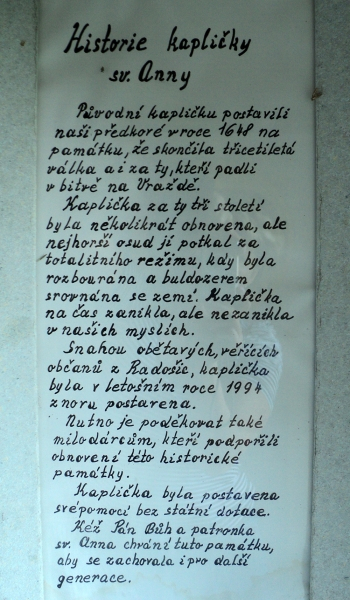 Historie kapličky
sv. Anny
Původní kapličku postavili
naši předkové v roce 1648 na
památku, že skončila třicetiletá
válka a i za ty, kteří padli
v bitvě na Vraždě.
Kaplička za ty tři století
byla několikrát obnovena, ale
nejhorší osud jí potkal za
totalitního režimu, kdy byla
rozbourána a buldozerem
srovnána se zemí. Kaplička
na čas zanikla, ale nezanikla
v našich myslích.
Snahou obětavých, věřících
občanů z Radošic, kaplička
byla v letošním roce 1994
znovu postavena.
Nutno je poděkovat také
milodárcům, kteří podpořili
obnovení této historické
památky.
Kaplička byla postavena
svépomocí bez státní dotace.
Kéž Pán Bůh a patronka
sv. Anna chrání tuto památku,
aby se zachovala i pro další
generace.